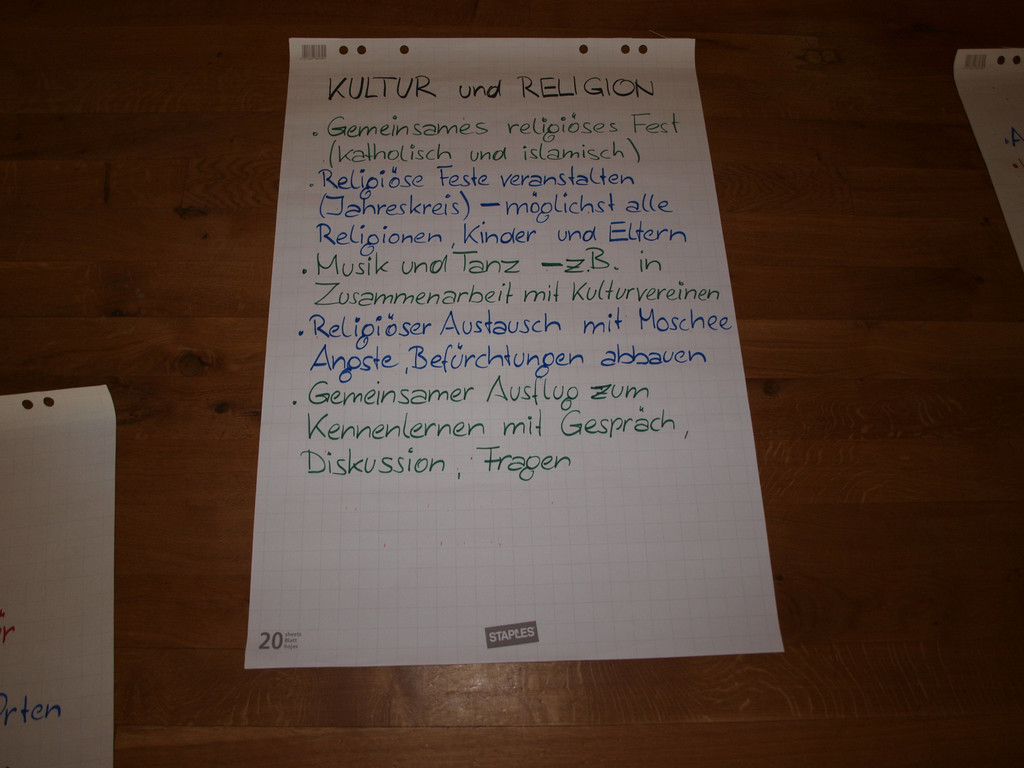 KULTUR und RELIGION
. Gemeinsames religiöses Fest
(katholisch und islamisch)
. Religiöse Feste veranstalten
(Jahreskreis) – möglichst alle
Religionen, Kinder und Eltern
. Musik und Tanz – z.B. in
Zusammenarbeit mit Kulturvereinen
. Religiöser Austausch mit Moschee
Ängste, Befürchtungen abbauen
. Gemeinsamer Ausflug zum
Kennenlernen mit Gespräch,
Diskussion, Fragen
20 sheets
Blatt
hojas
STAPLES
Orten